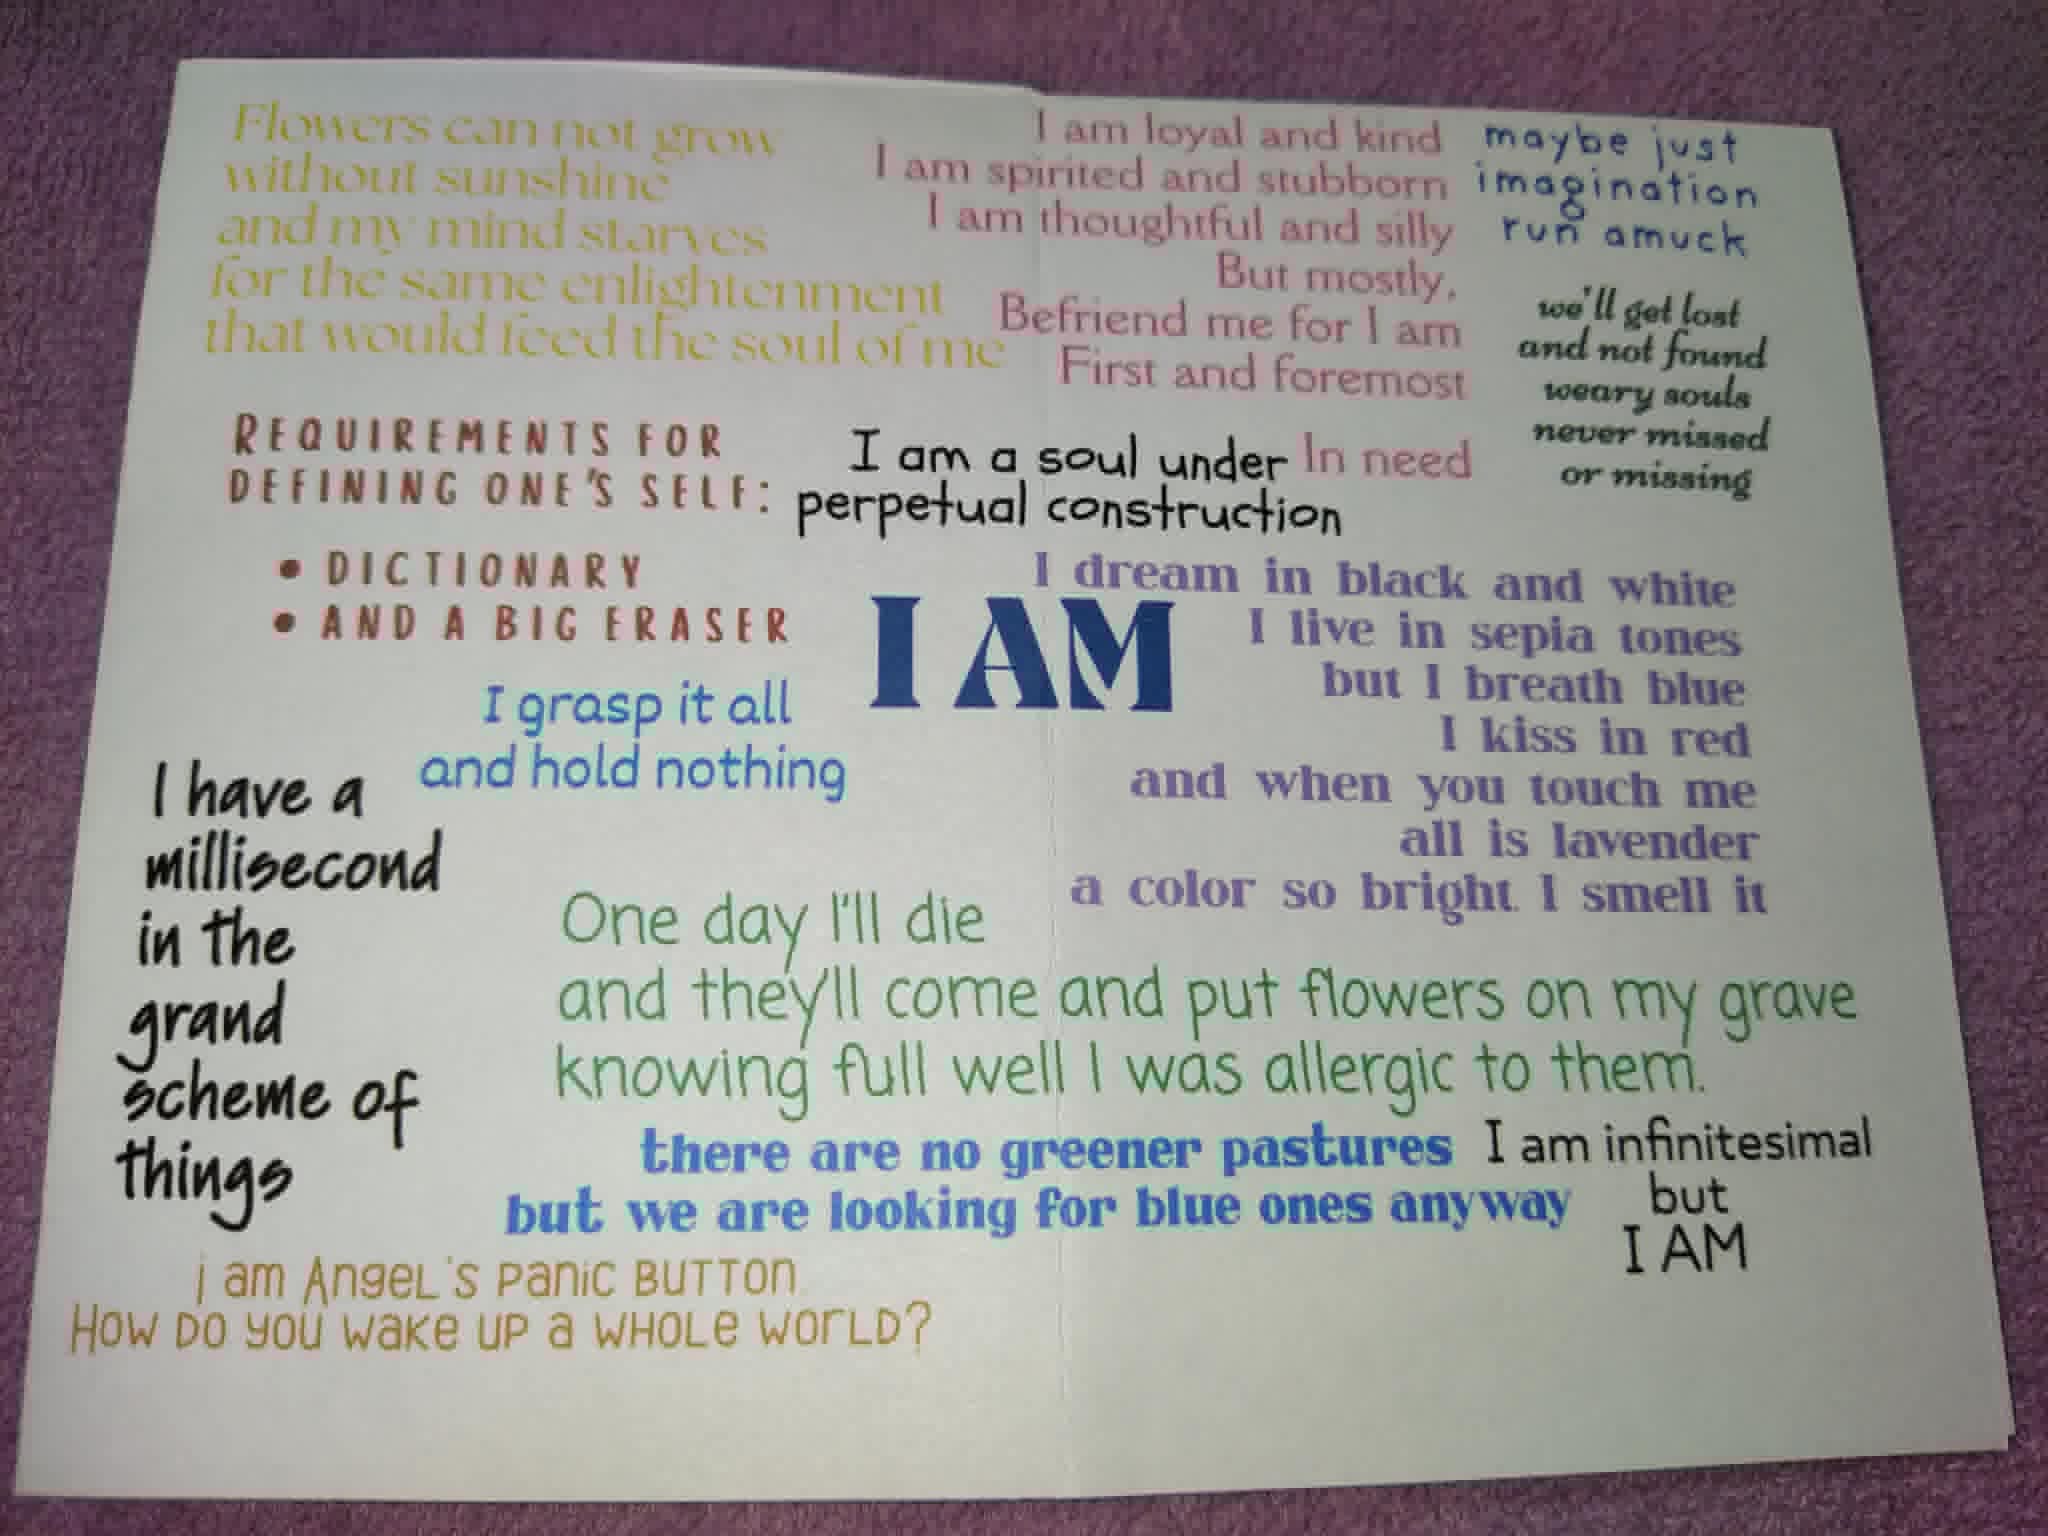 Flowers can not grow
without sunshine
and my mind starves
for the same enlightenment
that would feed the soul of me
I am loyal and kind
I am spirited and stubborn
I am thoughtful and silly
But mostly,
Befriend me for I am
First and foremost
In need
maybe just
imagination
run amuck
we'll get lost
and not found
weary souls
never missed
or missing
REQUIREMENTS FOR
DEFINING ONE'S SELF:
• DICTIONARY
• AND A BIG ERASER
I am a soul under
perpetual construction
I AM
I dream in black and white
I live in sepia tones
but I breath blue
I kiss in red
and when you touch me
all is lavender
a color so bright I smell it
I grasp it all
and hold nothing
I have a
millisecond
in the
grand
scheme of
things
One day I'll die
and they'll come and put flowers on my grave
knowing full well I was allergic to them.
there are no greener pastures
but we are looking for blue ones anyway
I am infinitesimal
but
I AM
i am Angel's panic button
How do you wake up a whole world?